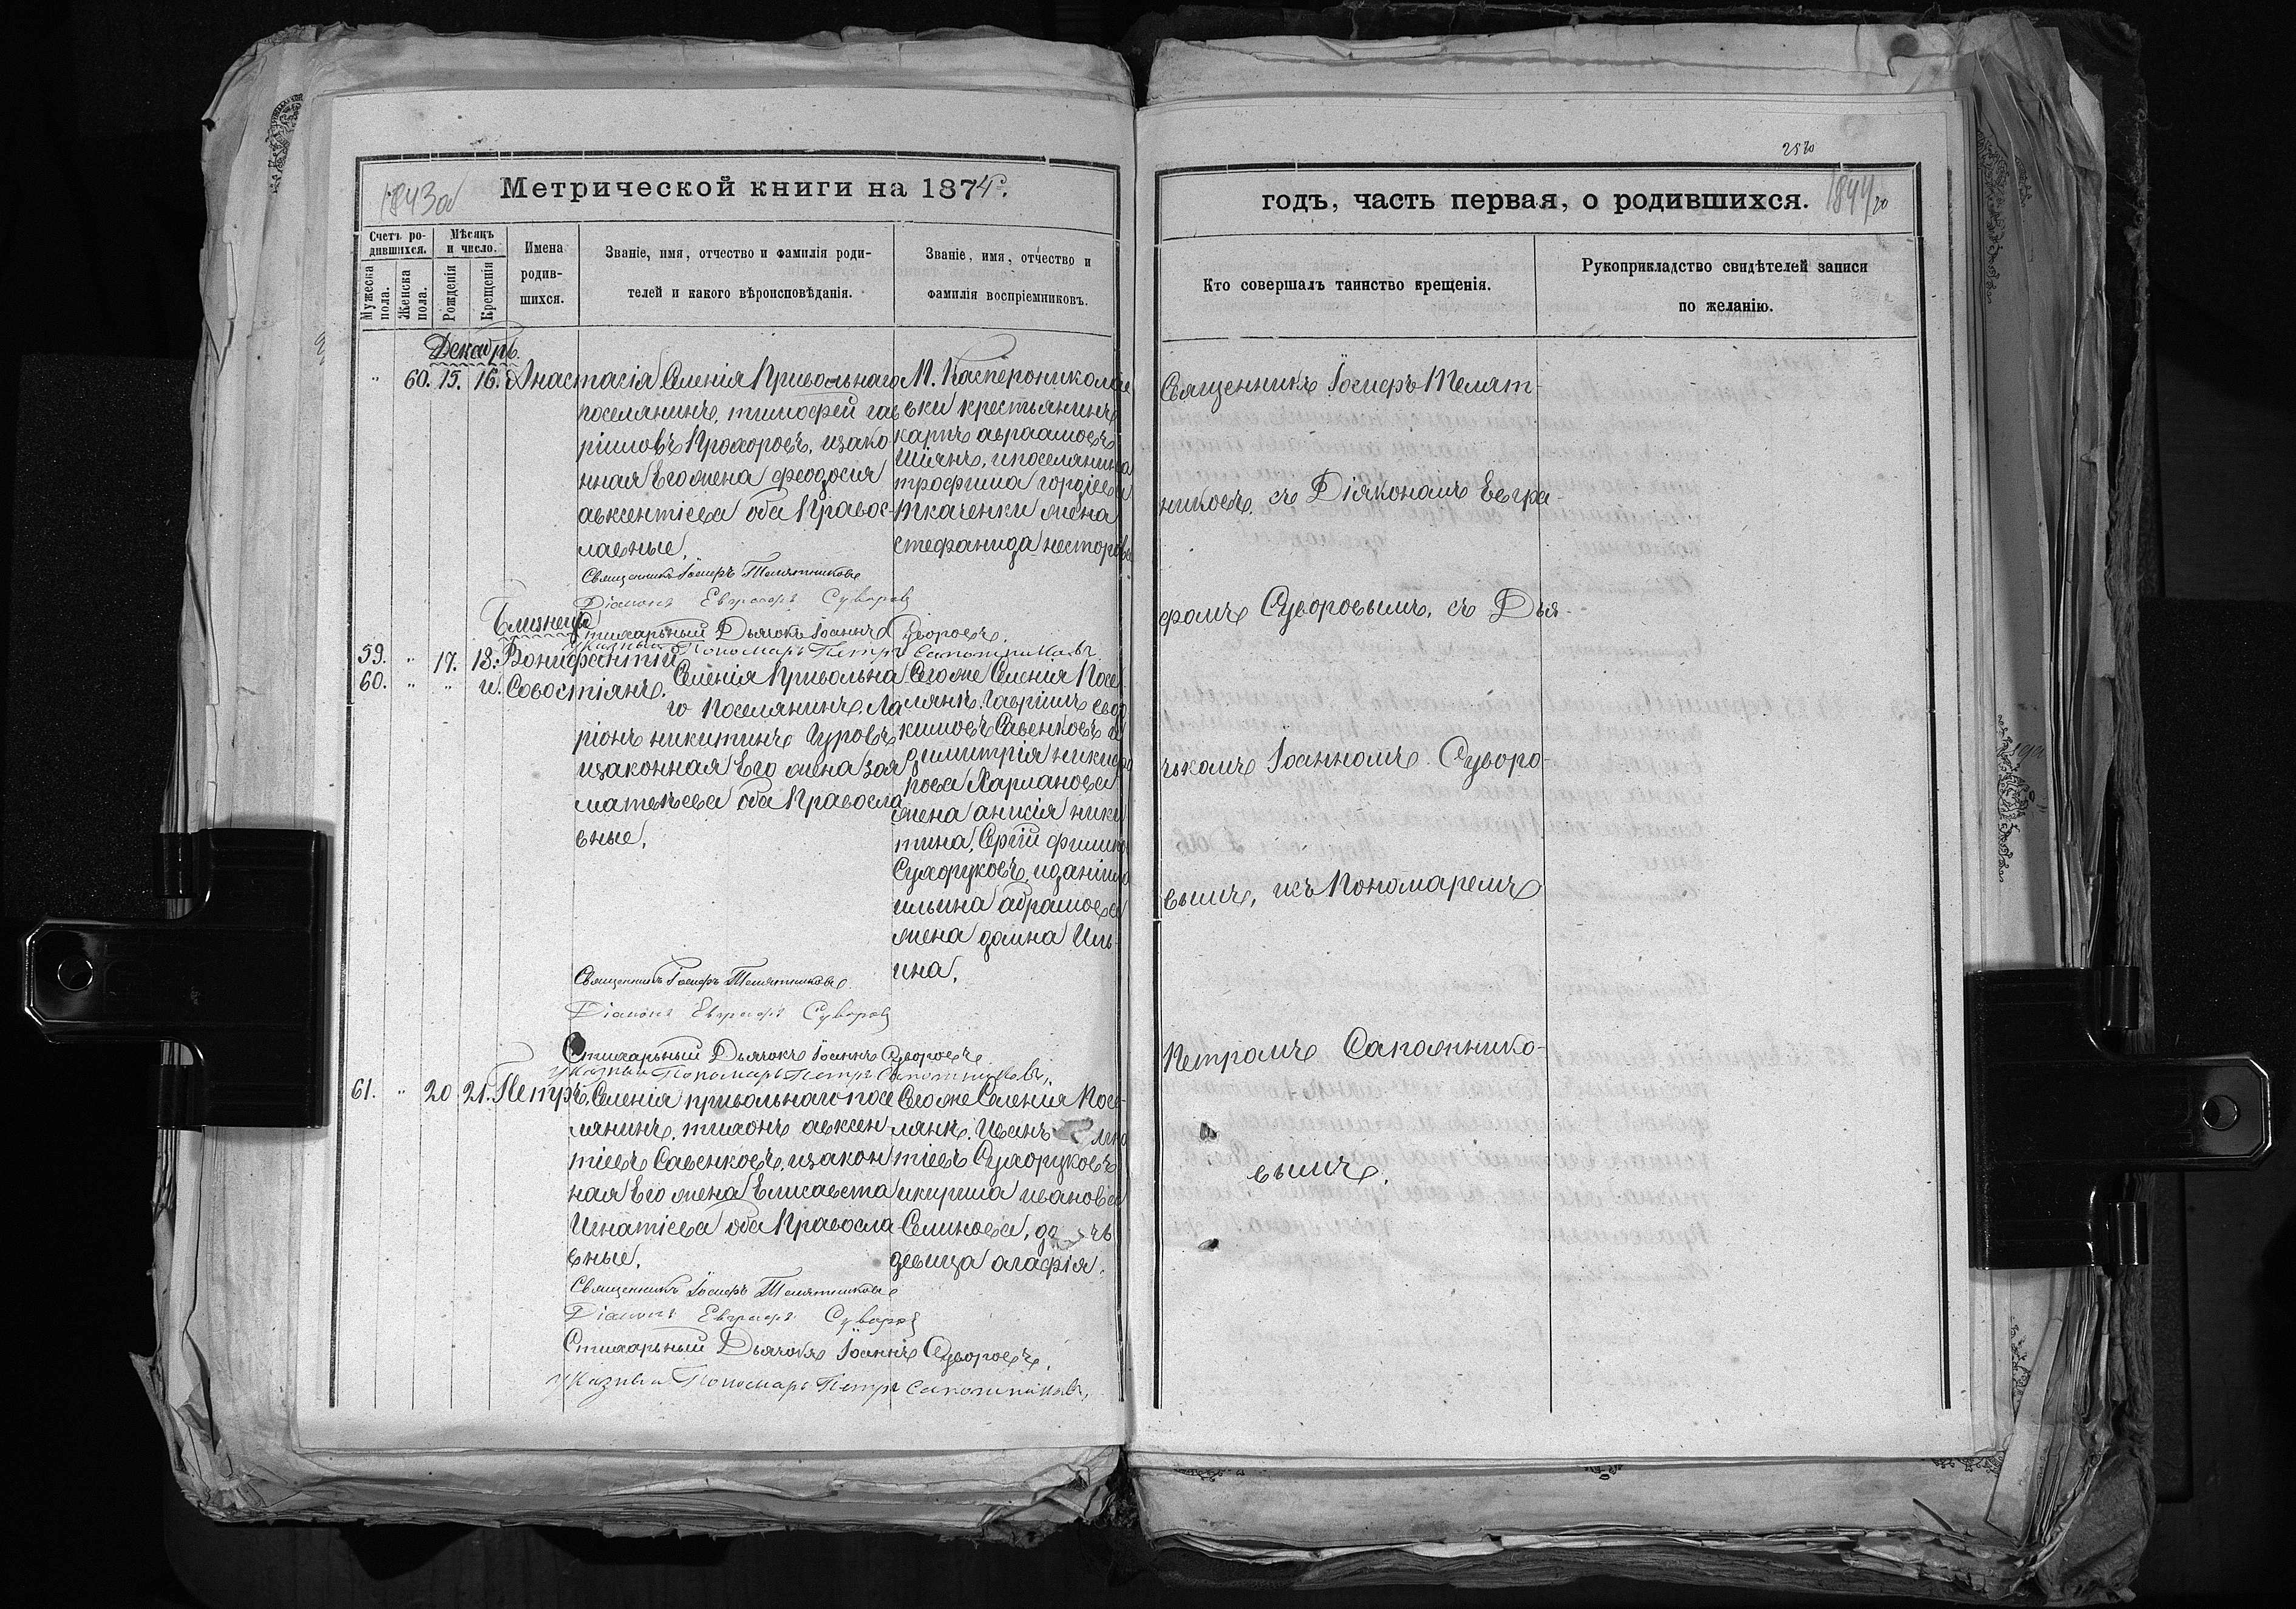 1843 об
Метрической книги на 1874.
Счетъ ро-
дившихся.
Мѣсяцъ
и число.
Мужеска
пола.
Женска
пола.
Рожденія
Крещенія
Имена
родив-
шихся.
Званіе, имя, отчество и фамилія роди-
телей и какого вѣроисповѣданія.
Званіе, имя, отчество и
фамилія воспріемниковъ.
Декабрь.
" 60. 15. 16. Анастасія
Селенія Привольнаго
поселянинъ, тимофей гав
ріиловъ Прохоровъ, изако
нная Его жена феодосия
авксентіева оба Правос-
лавные,
М. Касперониколае
вки крестьянинъ
карпъ авраамовъ
Шіянъ, ипоселянина
трофима гордіева
Ткаченки жена
стефанида несторова
Священникъ Іосифъ Телятниковъ
Діаконъ Евграфъ Суворовъ
Стихарный Дьячокъ Іоаннъ Суворовъ.
Указный Пономарь Петръ Сапожниковъ
Близнецы
59. " 17. 18. Вонифантій
60. " " и. Совостіянъ.
Селенія Привольна
го Поселянинъ. Ла
ріонъ никитинъ Гуровъ
изаконная Его жена зоя
матвѣева оба Правосла
вные,
Тогоже Селенія Посе
лянъ, Гавріилъ евдо
кимовъ Савенковъ и
димитрія никифо
рова Харланова
жена анисія ники
тина, Сергій филип
Сухоруковъ, иданіила
ильина абрамова
жена домна Иль-
ина,
Священникъ Іосифъ Телятниковъ
Діаконъ Евграфъ Суворовъ
Стихарный Дьячокъ Іоаннъ Суворовъ
Указный Пономарь Петръ Сапожниковъ,
61. " 20 21. Петръ.
Селенія привольнаго посе
лянинъ, тихонъ авксен
тіевъ Савенковъ, изакон
ная Его жена Елисавета
Игнатіева оба Правосла
вные,
Тогоже Селения Посе-
лянъ, Иванъ
тіевъ Сухоруковъ
икирила иванова
Селикова, дочь
девица агафія,
Священникъ Іосифъ Телятниковъ
Діаконъ Евграфъ Суворовъ
Стихарный Дьячокъ Іоаннъ Суворовъ,
Указный Пономарь Петръ Сапожниковъ,
1844
годъ, часть первая, о родившихся.
Кто совершалъ таинство крещенія.
Рукоприкладство свидѣтелей записи
по желанію.
Священникъ Іосифъ Телят-
никовъ, съ Діякономъ Евгра-
фомъ Суворовымъ, съ Дья-
чькомъ Іоанномъ Суворо-
вымъ, исъ Пономаремъ
Петромъ Сапожнико-
вымъ,